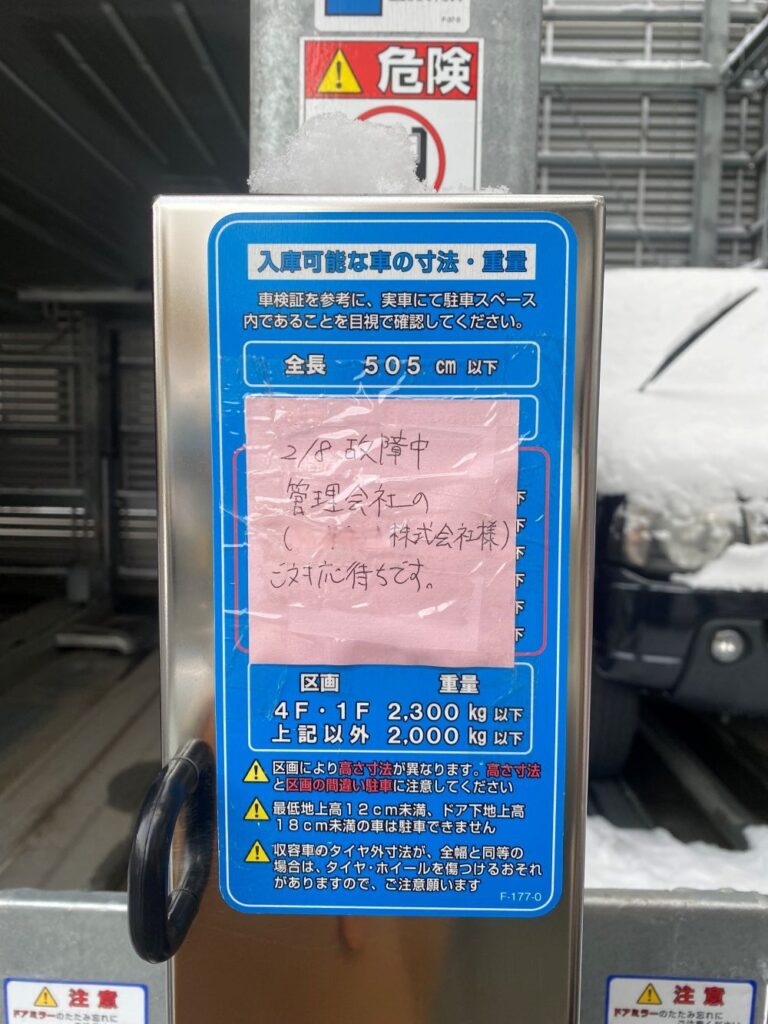 F-97-0
危険
入庫可能な車の寸法・重量
車検証を参考に、実車にて駐車スペース
内であることを目視で確認してください。
全長 505 cm 以下
2/8 故障中
管理会社の
( 株式会社様)
ご対応待ちです。
下
下
下
下
下
下
区画 重量
4F・1F 2,300 kg 以下
上記以外 2,000 kg 以下
区画により高さ寸法が異なります。高さ寸法
と区画の間違い駐車に注意してください
最低地上高12cm未満、ドア下地上高
18cm未満の車は駐車できません
収容車のタイヤ外寸法が、全幅と同等の
場合は、タイヤ・ホイールを傷つけるおそれ
がありますので、ご注意願います
F-177-0
注意
ドアミラーのたたみ忘れに
注意
ドアミラーのたたみ忘れに